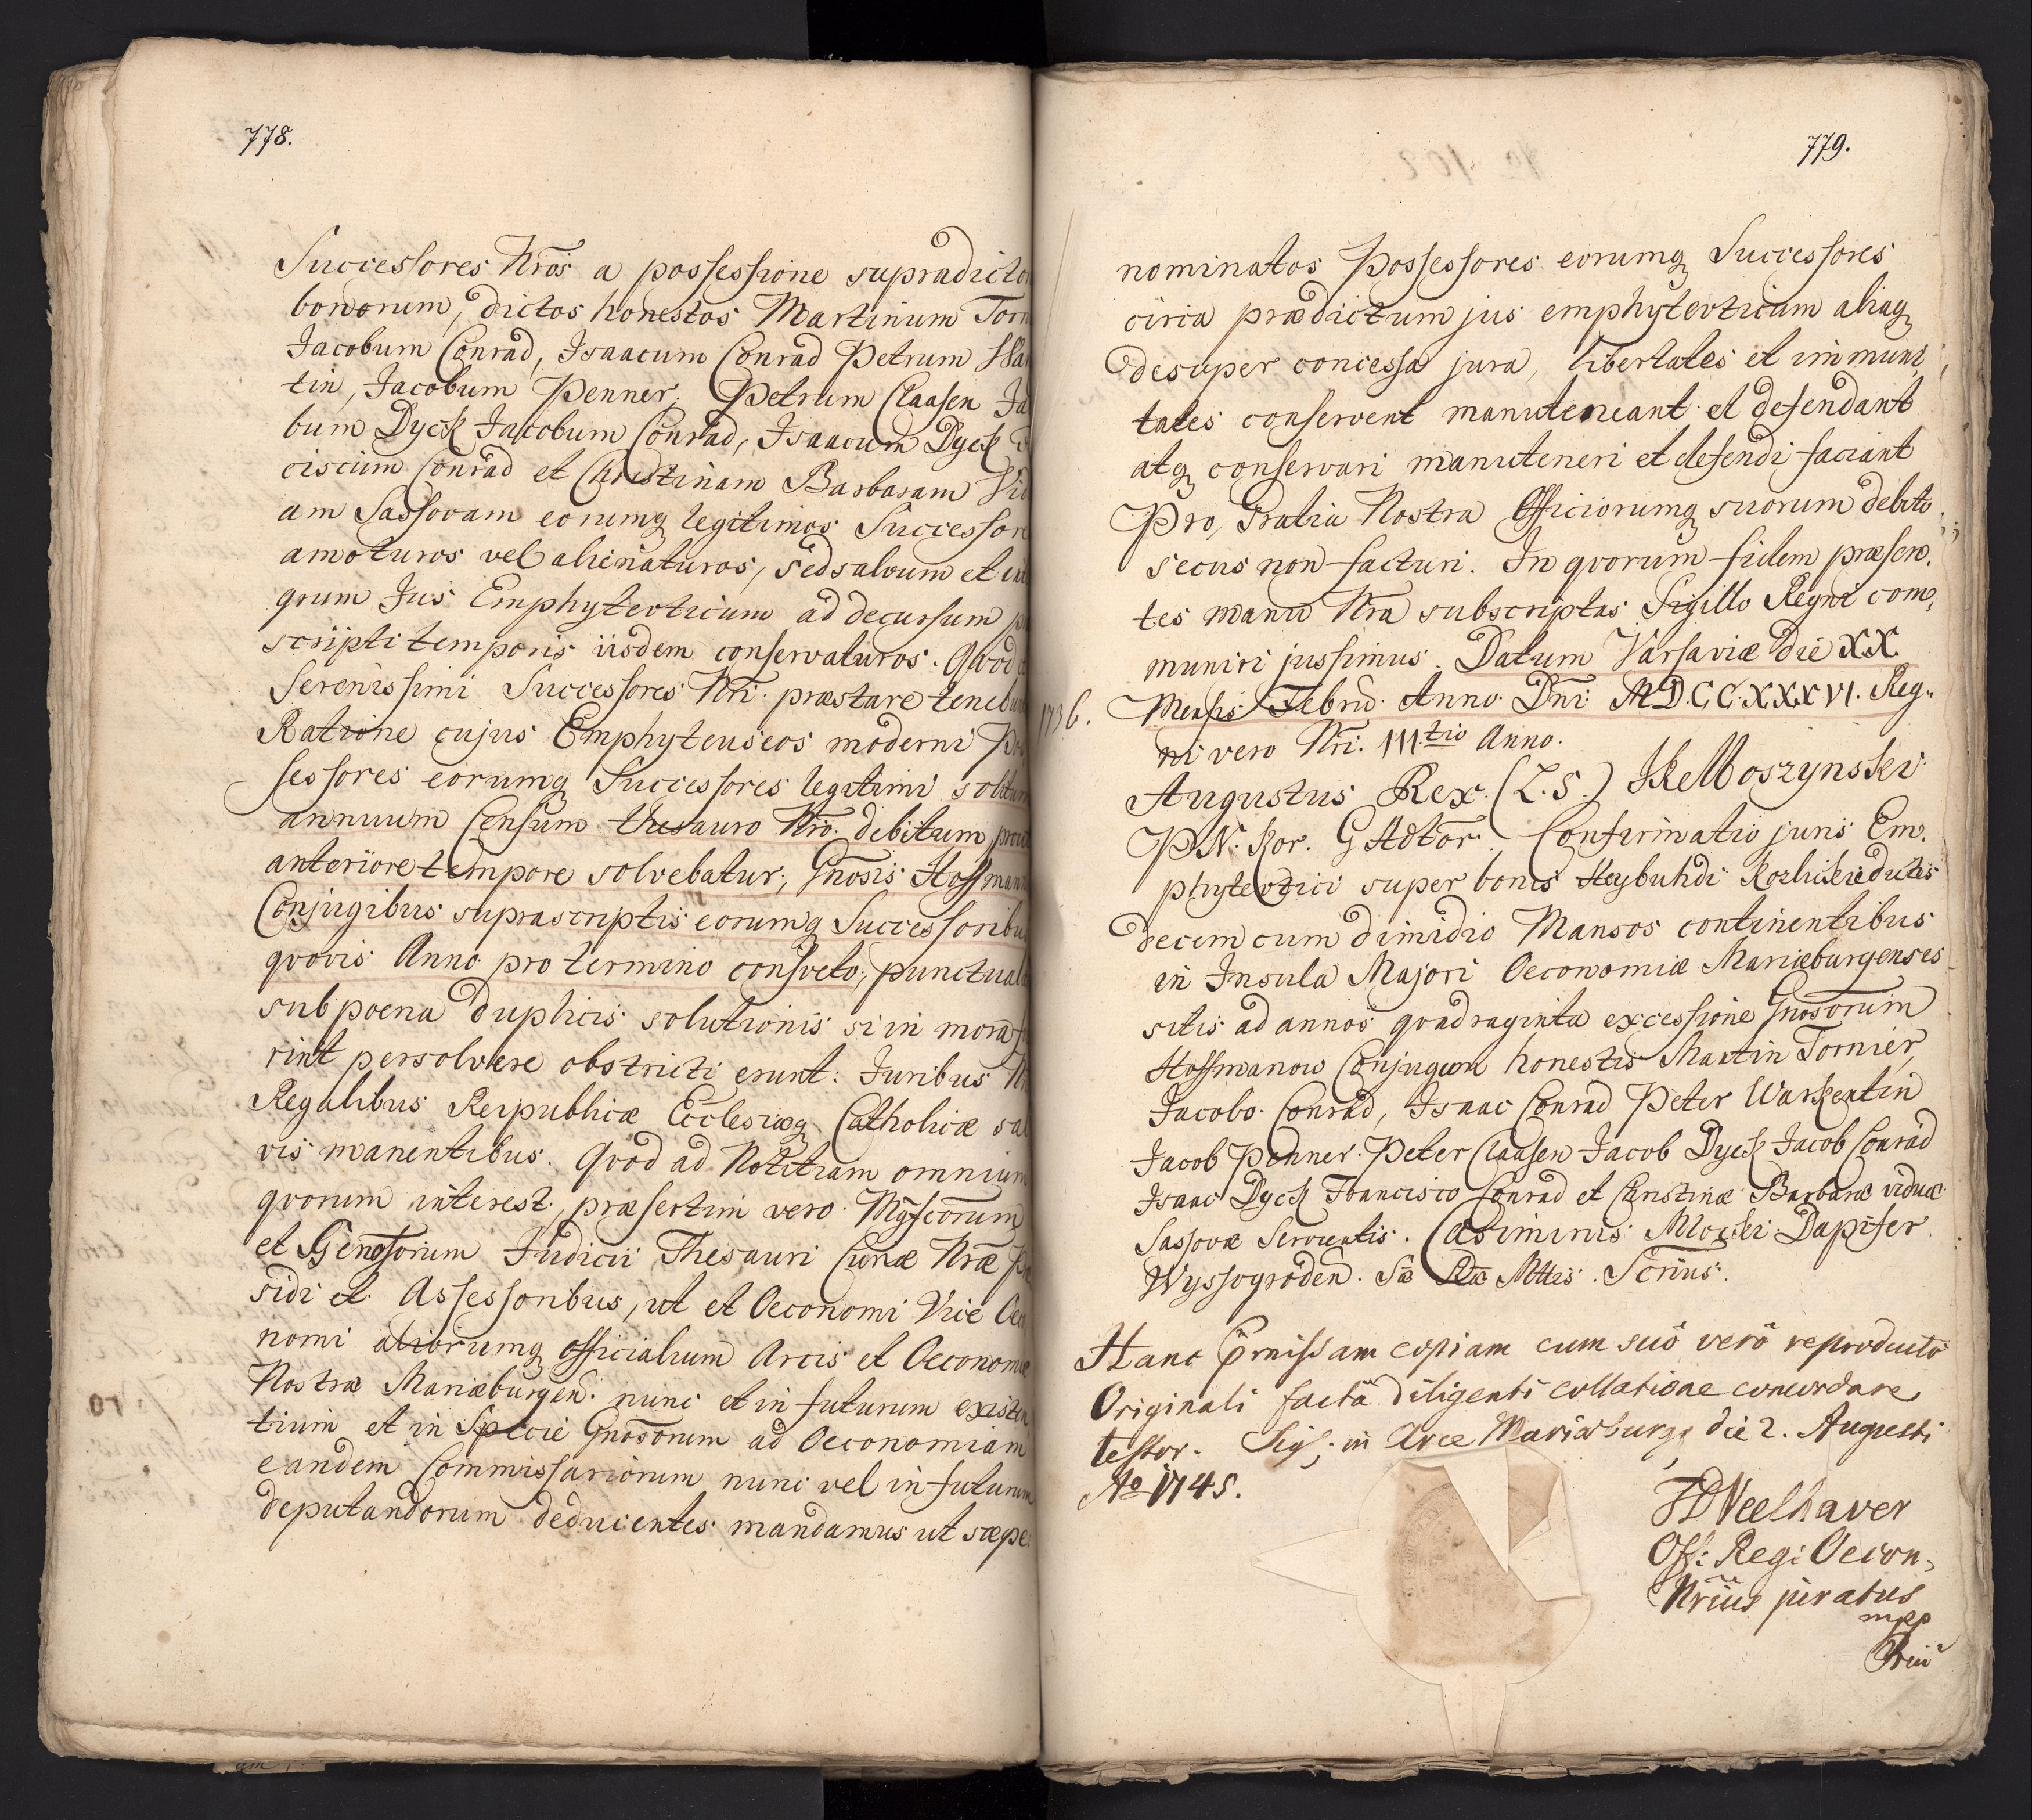 778.
Successores Nros a possessione supradicto
bonorum, dictos honestos Martinum Torn
Jacobum Conrad, Isaacum Conrad Petrum War
tin, Jacobum Penner, Petrum Claasen Ja
bum Dyck Jacobum Conrad, Isaacum Dyck
ciscum Conrad et Christinam Barbaram Vid
am Sassovam eorumq legitimos Successore
amoturos vel alienaturos, sed salvum et int
grum Jus Emphyteoticum ad decursum p
scripti temporis iisdem conservaturos. Qvod
Serenissimi Successores Nri præstare tenebun
Ratione cujus Emphyteuseos moderni Pos
sessores eorumq Successores legitimi solitum
annuum Censum thesauro Nro. debitum prout
anteriore tempore solvebatur, Gnosis Hoffmann
Conjugibus suprascriptis eorumq Successoribu
qvovis Anno pro termino consveto, punctual
sub poena duplicis solutionis si in mora fu
rint persolvere obstricti erunt: Juribus N
Regalibus Reipublicæ Ecclesiæq Catholicæ sal
vis manentibus. Qvod ad Notitiam omnium
qvorum interest, præsertim vero Mgfcorum
et Generosorum Judicii Thesauri Curiæ Nræ Præ
sidi et Assessoribus, ut et Oeconomi Vice Oeco
nomi aliorumq officialium Arcis et Oeconomiæ
Nostræ Mariæburgen. nunc et in futurum existen
tium et in Specie Gnosorum ad Oeconomiam
eandem Commissariorum nunc vel in futurum
deputandorum deducentes mandamus ut sæpe
779.
nominatos Possessores eorumq Successores
circa prædictum jus emphyteoticum aliaq
desuper concessa jura, libertates et immuni
tates conservent manuteneant et defendant
atq conservari manuteneri et defendi faciant
Pro, Gratia Nostra Officiorumq suorum debito
secus non facturi. In qvorum fidem præsen.
tes manu Nra subscriptas Sigillo Regni com,
muniri jussimus. Datum Varsaviæ die XX.
1736. Mensis Febru. Anno Dni MDCCXXXVI. Reg
ni vero Nri. III.tio Anno.
Augustus Rex. (L.S.)
P.N. Kor. Confirmatio juris Em.
phyteotici super bonis Heybuhdi Kozliskie dictis
decem cum dimidio Mansos continentibus
in Insula Majori Oeconomiæ Mariæburgensis
sitis ad annos qvadraginta ex cessione Gnosorum
Hoffmanow Conjugum honestis Martin Tornier,
Jacobo Conrad, Isaac Conrad Peter Warkentin
Jacob Penner Peter Claasen Jacob Dyck Jacob Conrad
Isaac Dyck Francisco Conrad et Christinæ Barbaræ viduæ
Sassovæ Servientis. Casimirus Mocki Dapifer
Wyssogroden. Sæ Ræ Mttis. Scrius.
Hanc præmissam copiam cum suô verô reproducto
Originali factâ diligenti collatione concordare
testor. Sigl; in Arce Mariæburg, die 2. Augusti
Ao 1745.
Neelhaver
Off: Reg: Oecon,
Nrius juratus
mpp